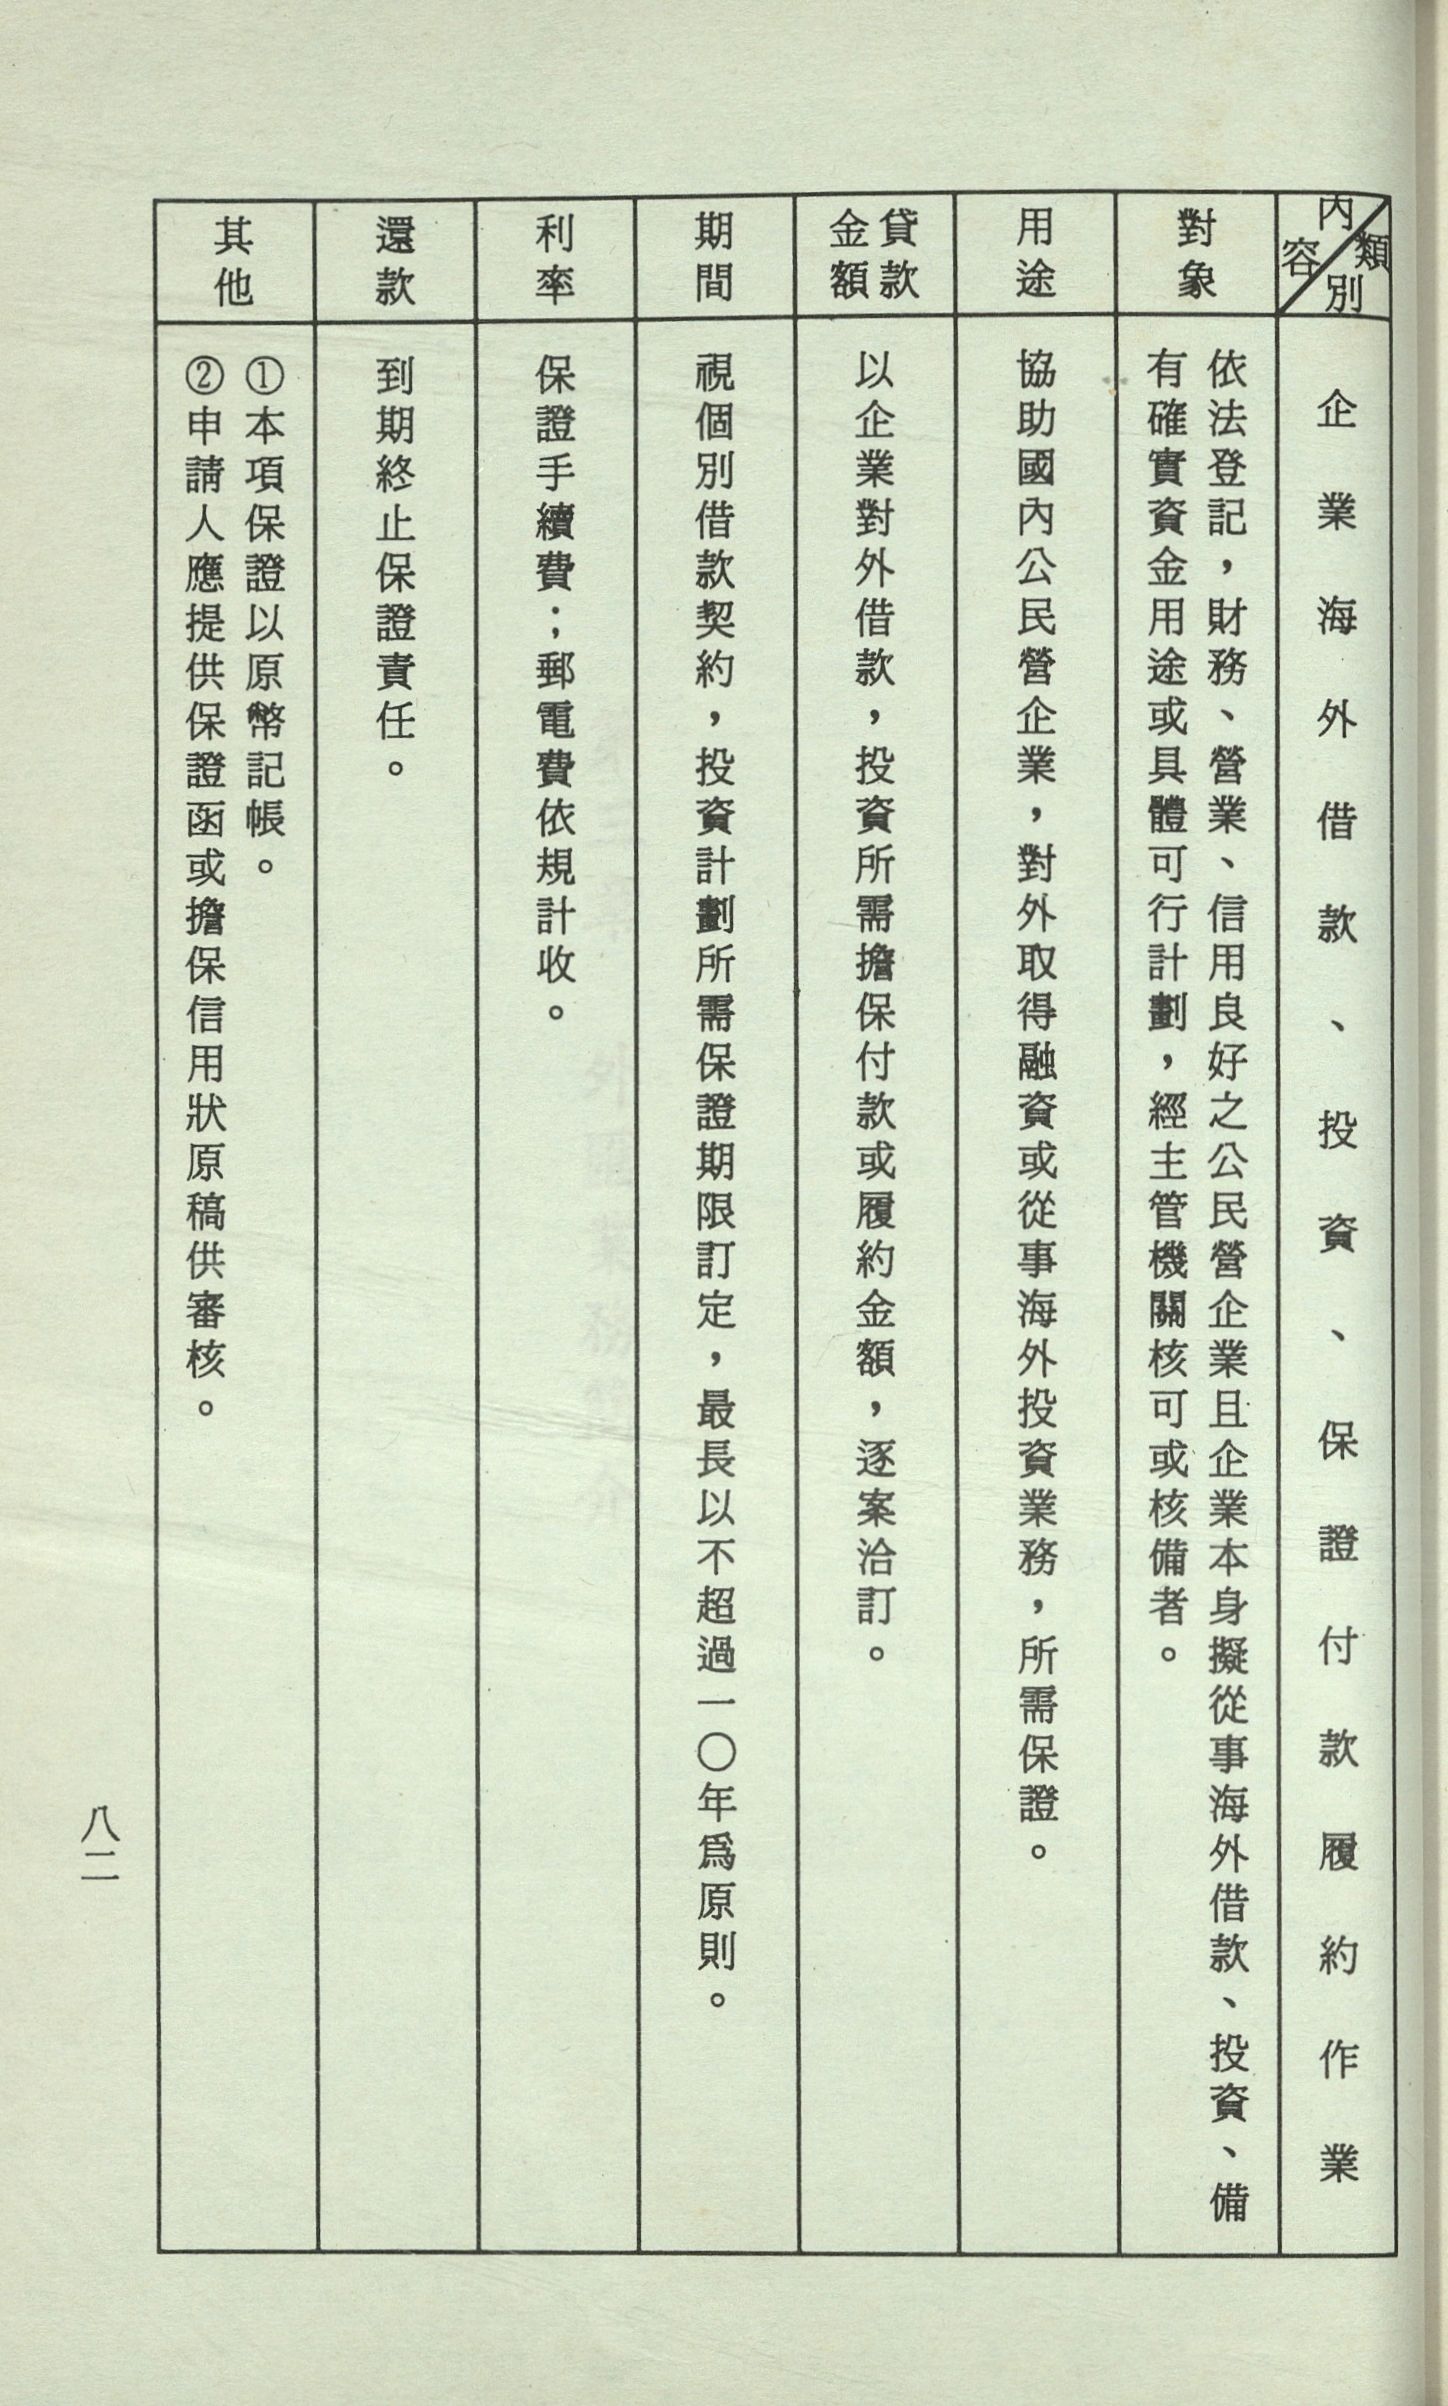 內容
類別
企業海外借款、投資、保證付款履約作業
對象
依法登記，財務、營業、信用良好之公民營企業且企業本身擬從事海外借款、投資、備
有確實資金用途或具體可行計劃，經主管機關核可或核備者。
用途
協助國內公民營企業，對外取得融資或從事海外投資業務，所需保證。
貸款
金額
以企業對外借款，投資所需擔保付款或履約金額，逐案洽訂。
期間
視個別借款契約，投資計劃所需保證期限訂定，最長以不超過一〇年為原則。
利率
保證手續費；郵電費依規計收。
還款
到期終止保證責任。
其他
①本項保證以原幣記帳。
②申請人應提供保證函或擔保信用狀原稿供審核。
八二